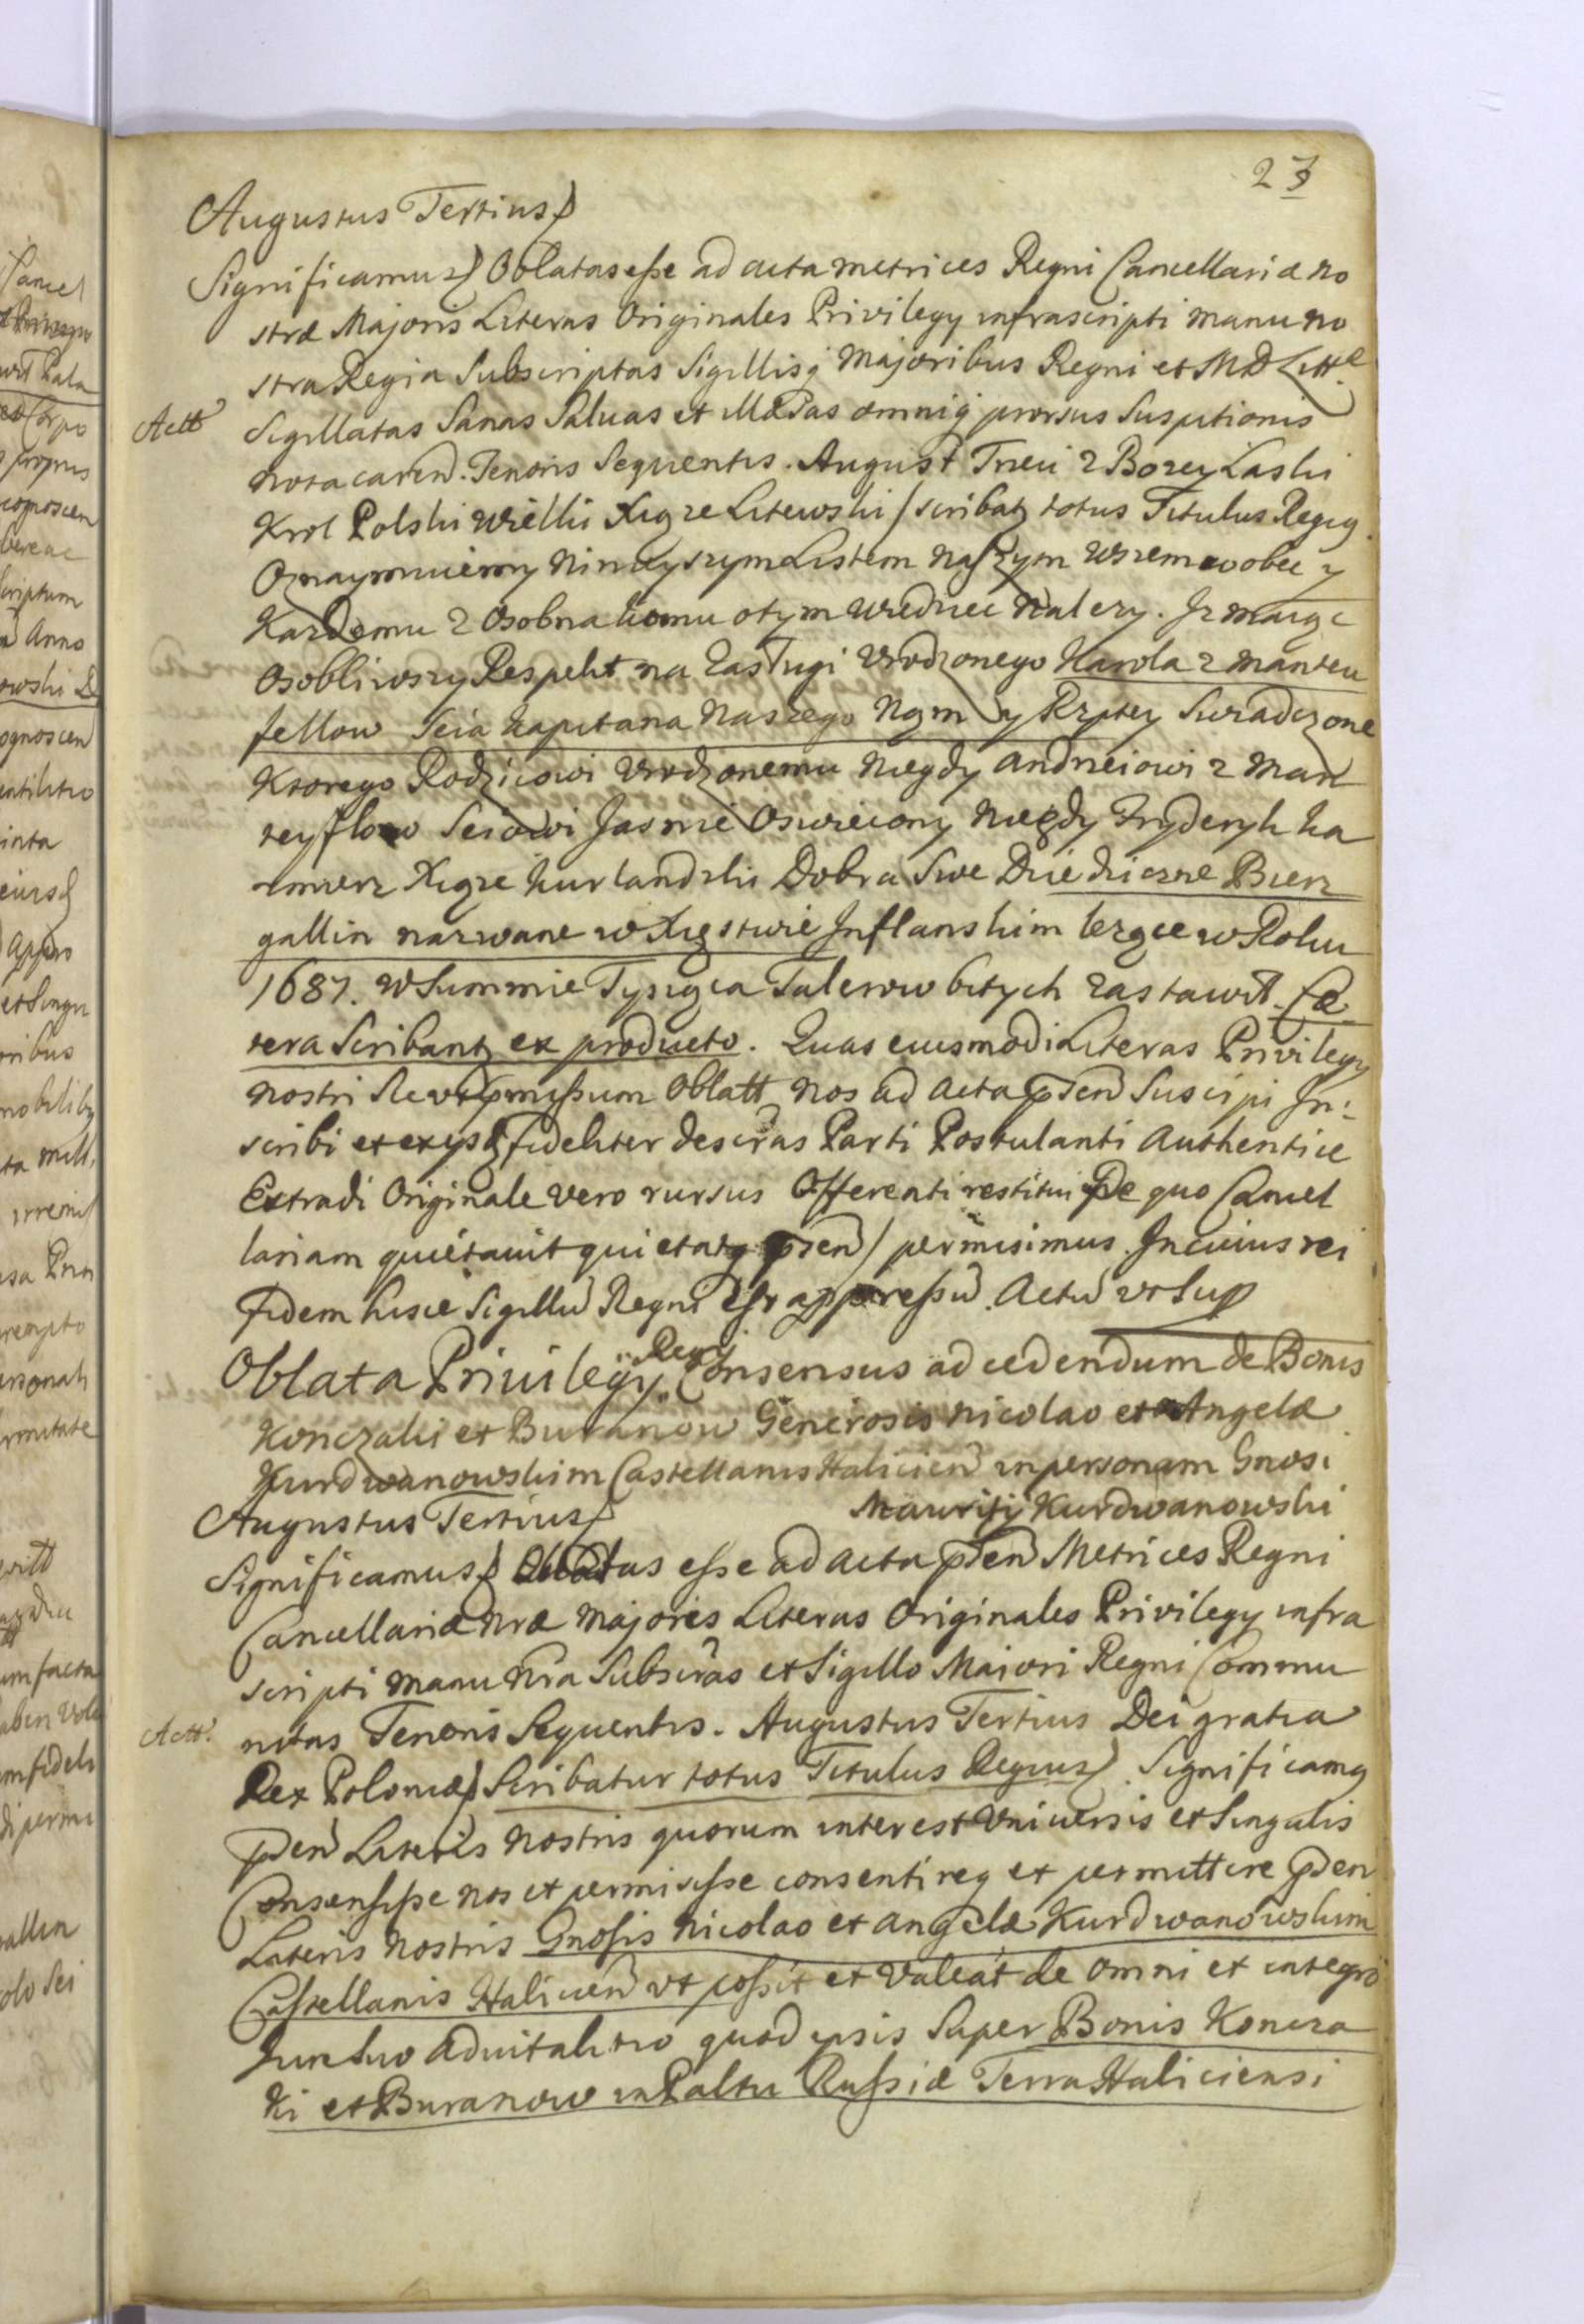 23
Augustus Tertius
Significamus Oblatas esse ad acta metrices Regni Cancellariæ no
stræ Majoris Literas Originales Privilegy infrascripti manu no
stra Regia Subscriptas Sigillisq Majoribus Regni et M D Litt
Actt Sigillatas Sanas Saluas et Illæsas omniq prorsus Suspitionis
nota caren. Tenoris Sequentis. August Trzeci z Bozey Laski
Krol Polski Wielki Xiąze Litewski / scribatz totus Titulus Regig
Oznaymuiemy Ninieyszym Listem Naszym Wszem wobec y
Kazdemu z Osobna komu o tym Wiedziec Nalezy. Iz maiąc
Osobliwszy Respekt na Zasługi Vrodzonego Karola z Manteu
fellow Seia kapitana Naszego Nąm y Rzptey Swiadczone
Ktorego Rodzicowi Vrodzonemu Niegdy Andrzeiowi z Man
teyflow Seiowi Jasnie Oswiecony Niegdy Fryderyk Ka
zimierz Xiąze kurlandzki Dobra Swe Dziedziczne Bierz
gallin nazwane w Xięstwie Inflanskim lezące w Roku
1687. w Summie Tysiąca Talerow bitych Zastawił. Cæ
tera Scribantz ex producto. Quas eiusmodi Literas Privilegy
nostri Sic vt pmissum Oblatt nos ad Acta psen Suscipi In:
scribi et exysq fideliter descras Parti Postulanti Authentice
Extradi Originale vero rursus Offerenti restitui De quo Cancel
lariam quietauit quietatq psen / permisimus. In cuius rei
fidem hisce Sigillu Regni Est appressu. Actu vt Sup
Oblata Priuilegÿ Regÿ Consensus ad cedendum de Bonis
Konczaki et Buranow Generosis Nicolao et Angelæ
Kurdwanowskim Castellanis Halicien in personam Gnosi
Mauritij Kurdwanowski
Augustus Tertius
Significamus Oblatas esse ad acta psen Metrices Regni
Cancellariæ nræ Majoris Literas Originales Privilegy infra
scripti manu Nra Subscras et Sigillo Maiori Regni Commu
Actt. nitas Tenoris Sequentis. Augustus Tertius Dei gratia
Rex Poloniæ Scribatur totus Titulus Regius Significamq
psen Literis Nostris quorum interest Vniuersis et Singulis
Consensisse nos et permisisse consentireq et permittere psen
Literis Nostris Gnosis Nicolao et Angelæ Kurdwanowskim
Castellanis Halicien vt possit et Valeat de Omni et integro
Jure Suo Aduitalitio quod ipsis Super Bonis Koncza
ki et Buranow in Paltu Russiæ Terra Haliciensi